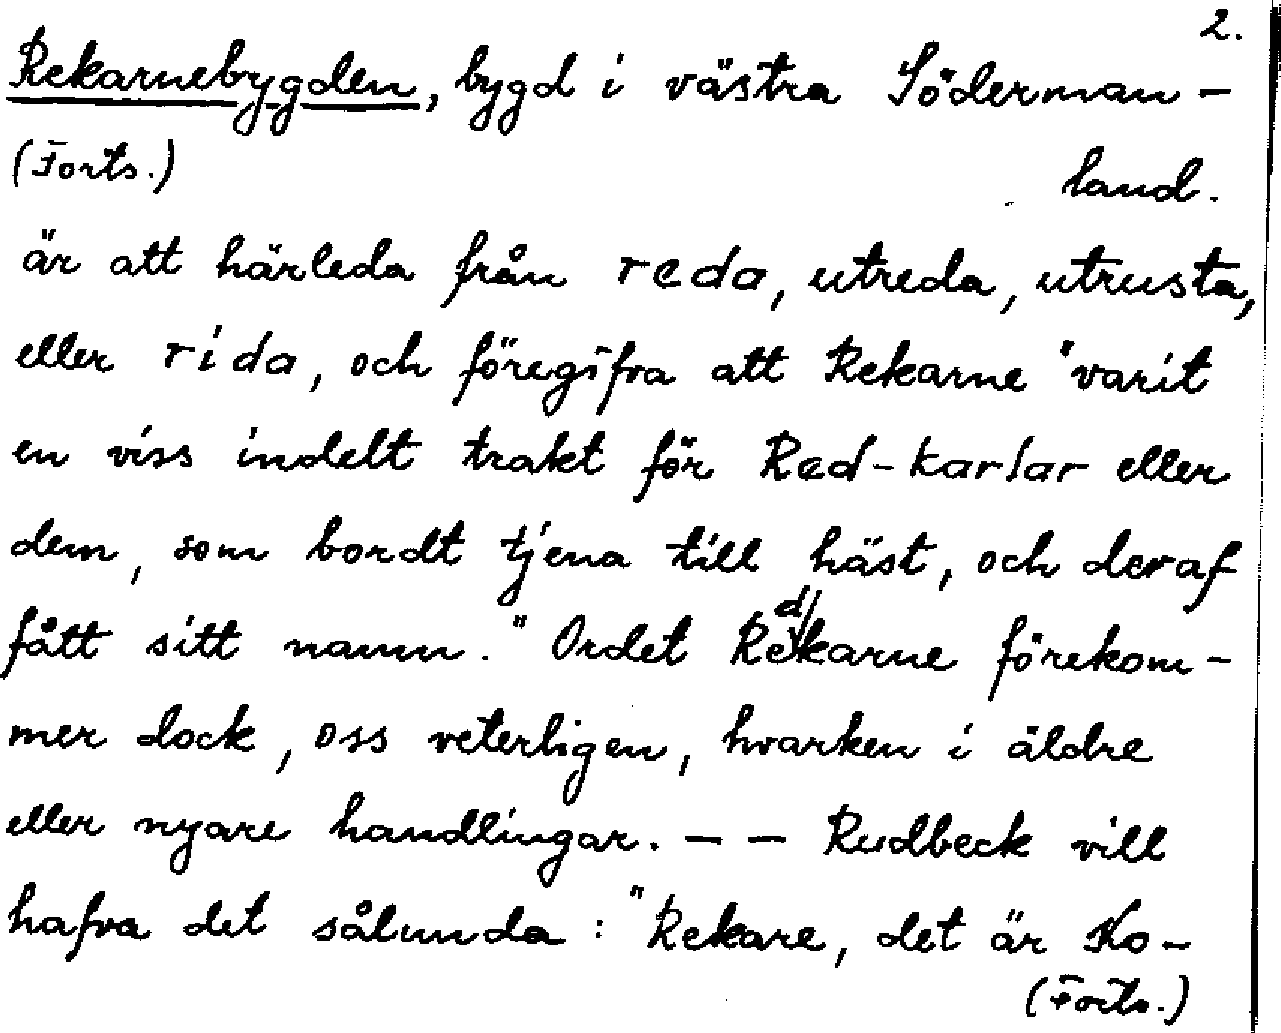 2.
Rekarnebygden, bygd i västra Söderman-
(Forts.) land.
är att härleda från reda, utreda, utrusta,
eller rida, och föregifva att Rekarne "varit
en viss indelt trakt för Red-karlar eller
dem, som bordt tjena till häst, och deraf
fått sitt namn." Ordet Redkarne förekom-
mer dock, oss veterligen, hvarken i äldre
eller nyare handlingar. – – Rudbeck vill
hafva det sålunda: "Rekare, det är Ko-
(Forts.)